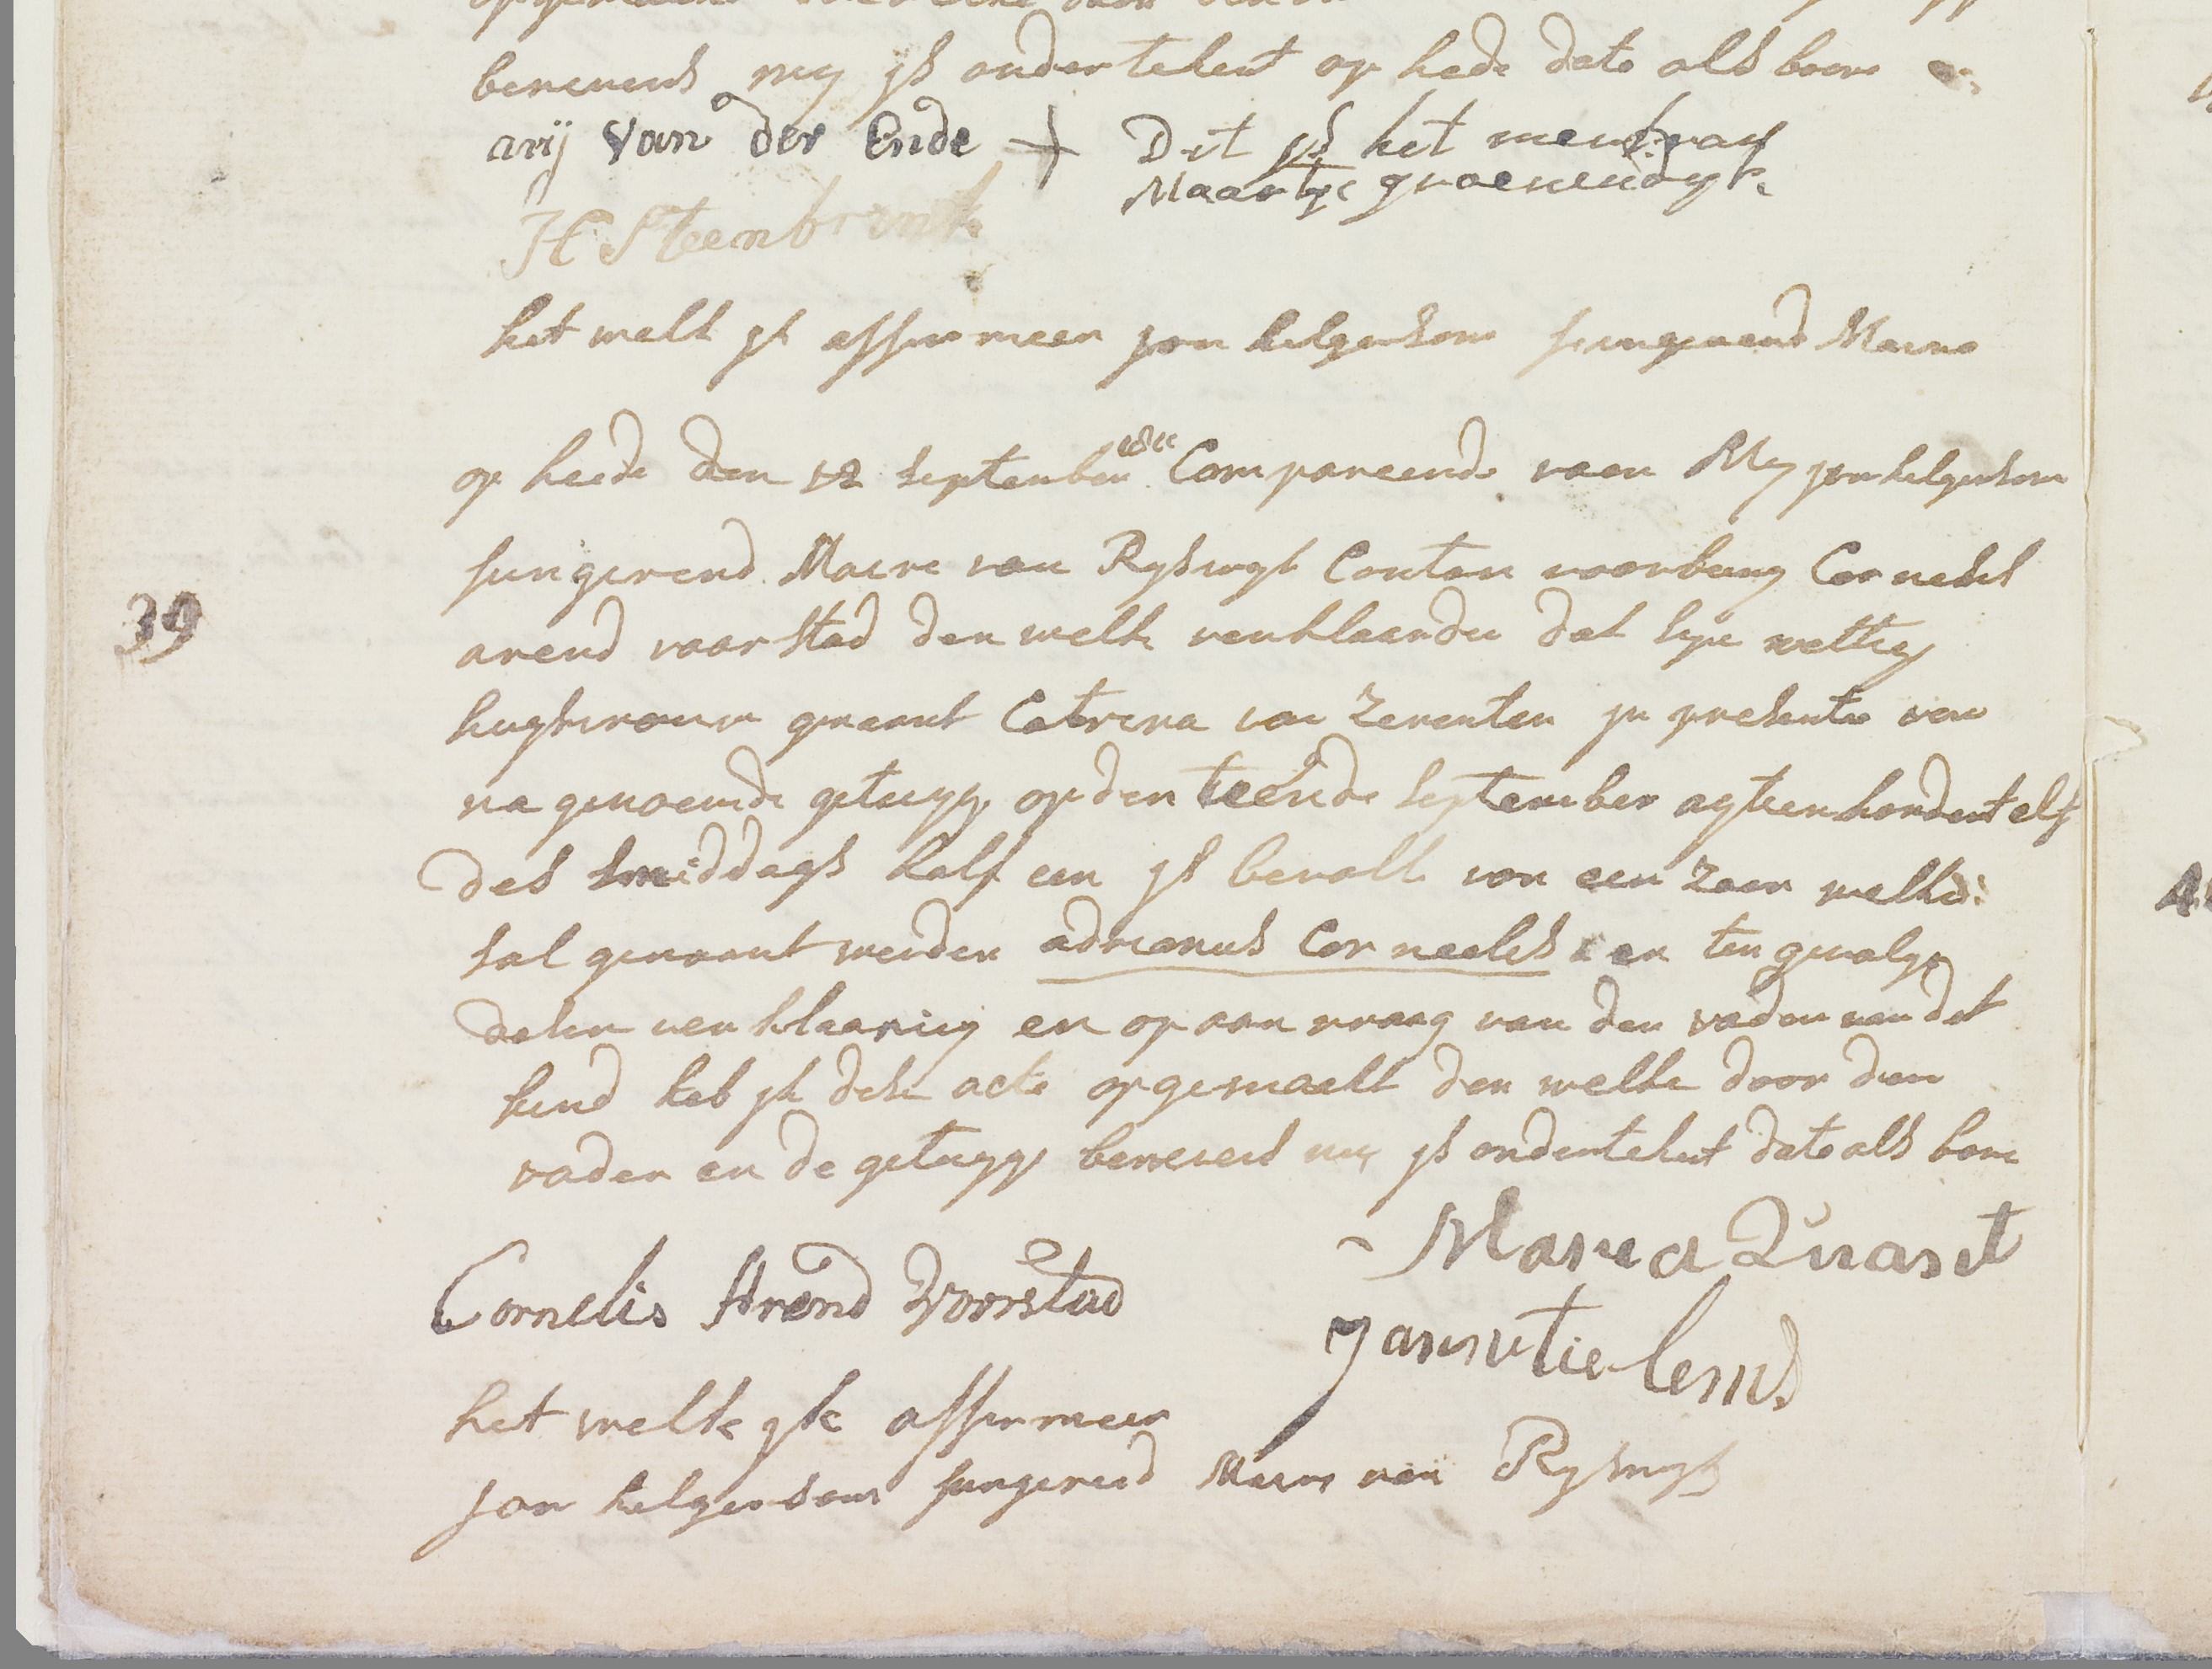 benevens my ys ondertekent op hede dato als boove
arij van der Ende + Dit ys het merk van
Maartje groenendyk
H Steenbrink
het welk yk affirmeer jan helgersom fungerend Maire
op heede den 12 september 1811 Compareende voor My jan helgersom
fungerend Maire van Ryswyk Canton voorburg Cornelis
arend voorstad den welke verklaarde dat syn wettig
huysvrouw genaamt Catrina van Zeventer yn presentie van
na genoemde getuyge op den teende september agtien hondert elf
39
des smiddags half een ys bevalle van een zoon welke
sal genaamt werden adrianus Corneelis en ten gevolge
deser verklaaring en op aanvraag van den vader van dit
kind heb yk dese acte opgemaekt den welke door den
vader en de getuyge benevens my ys ondertekent dato als bove
Maria Quast
Cornelis Arend Voorstad
Jannetie lems
het welk yk affirmeer
jan helgersom fungerend Maire van Ryswyk